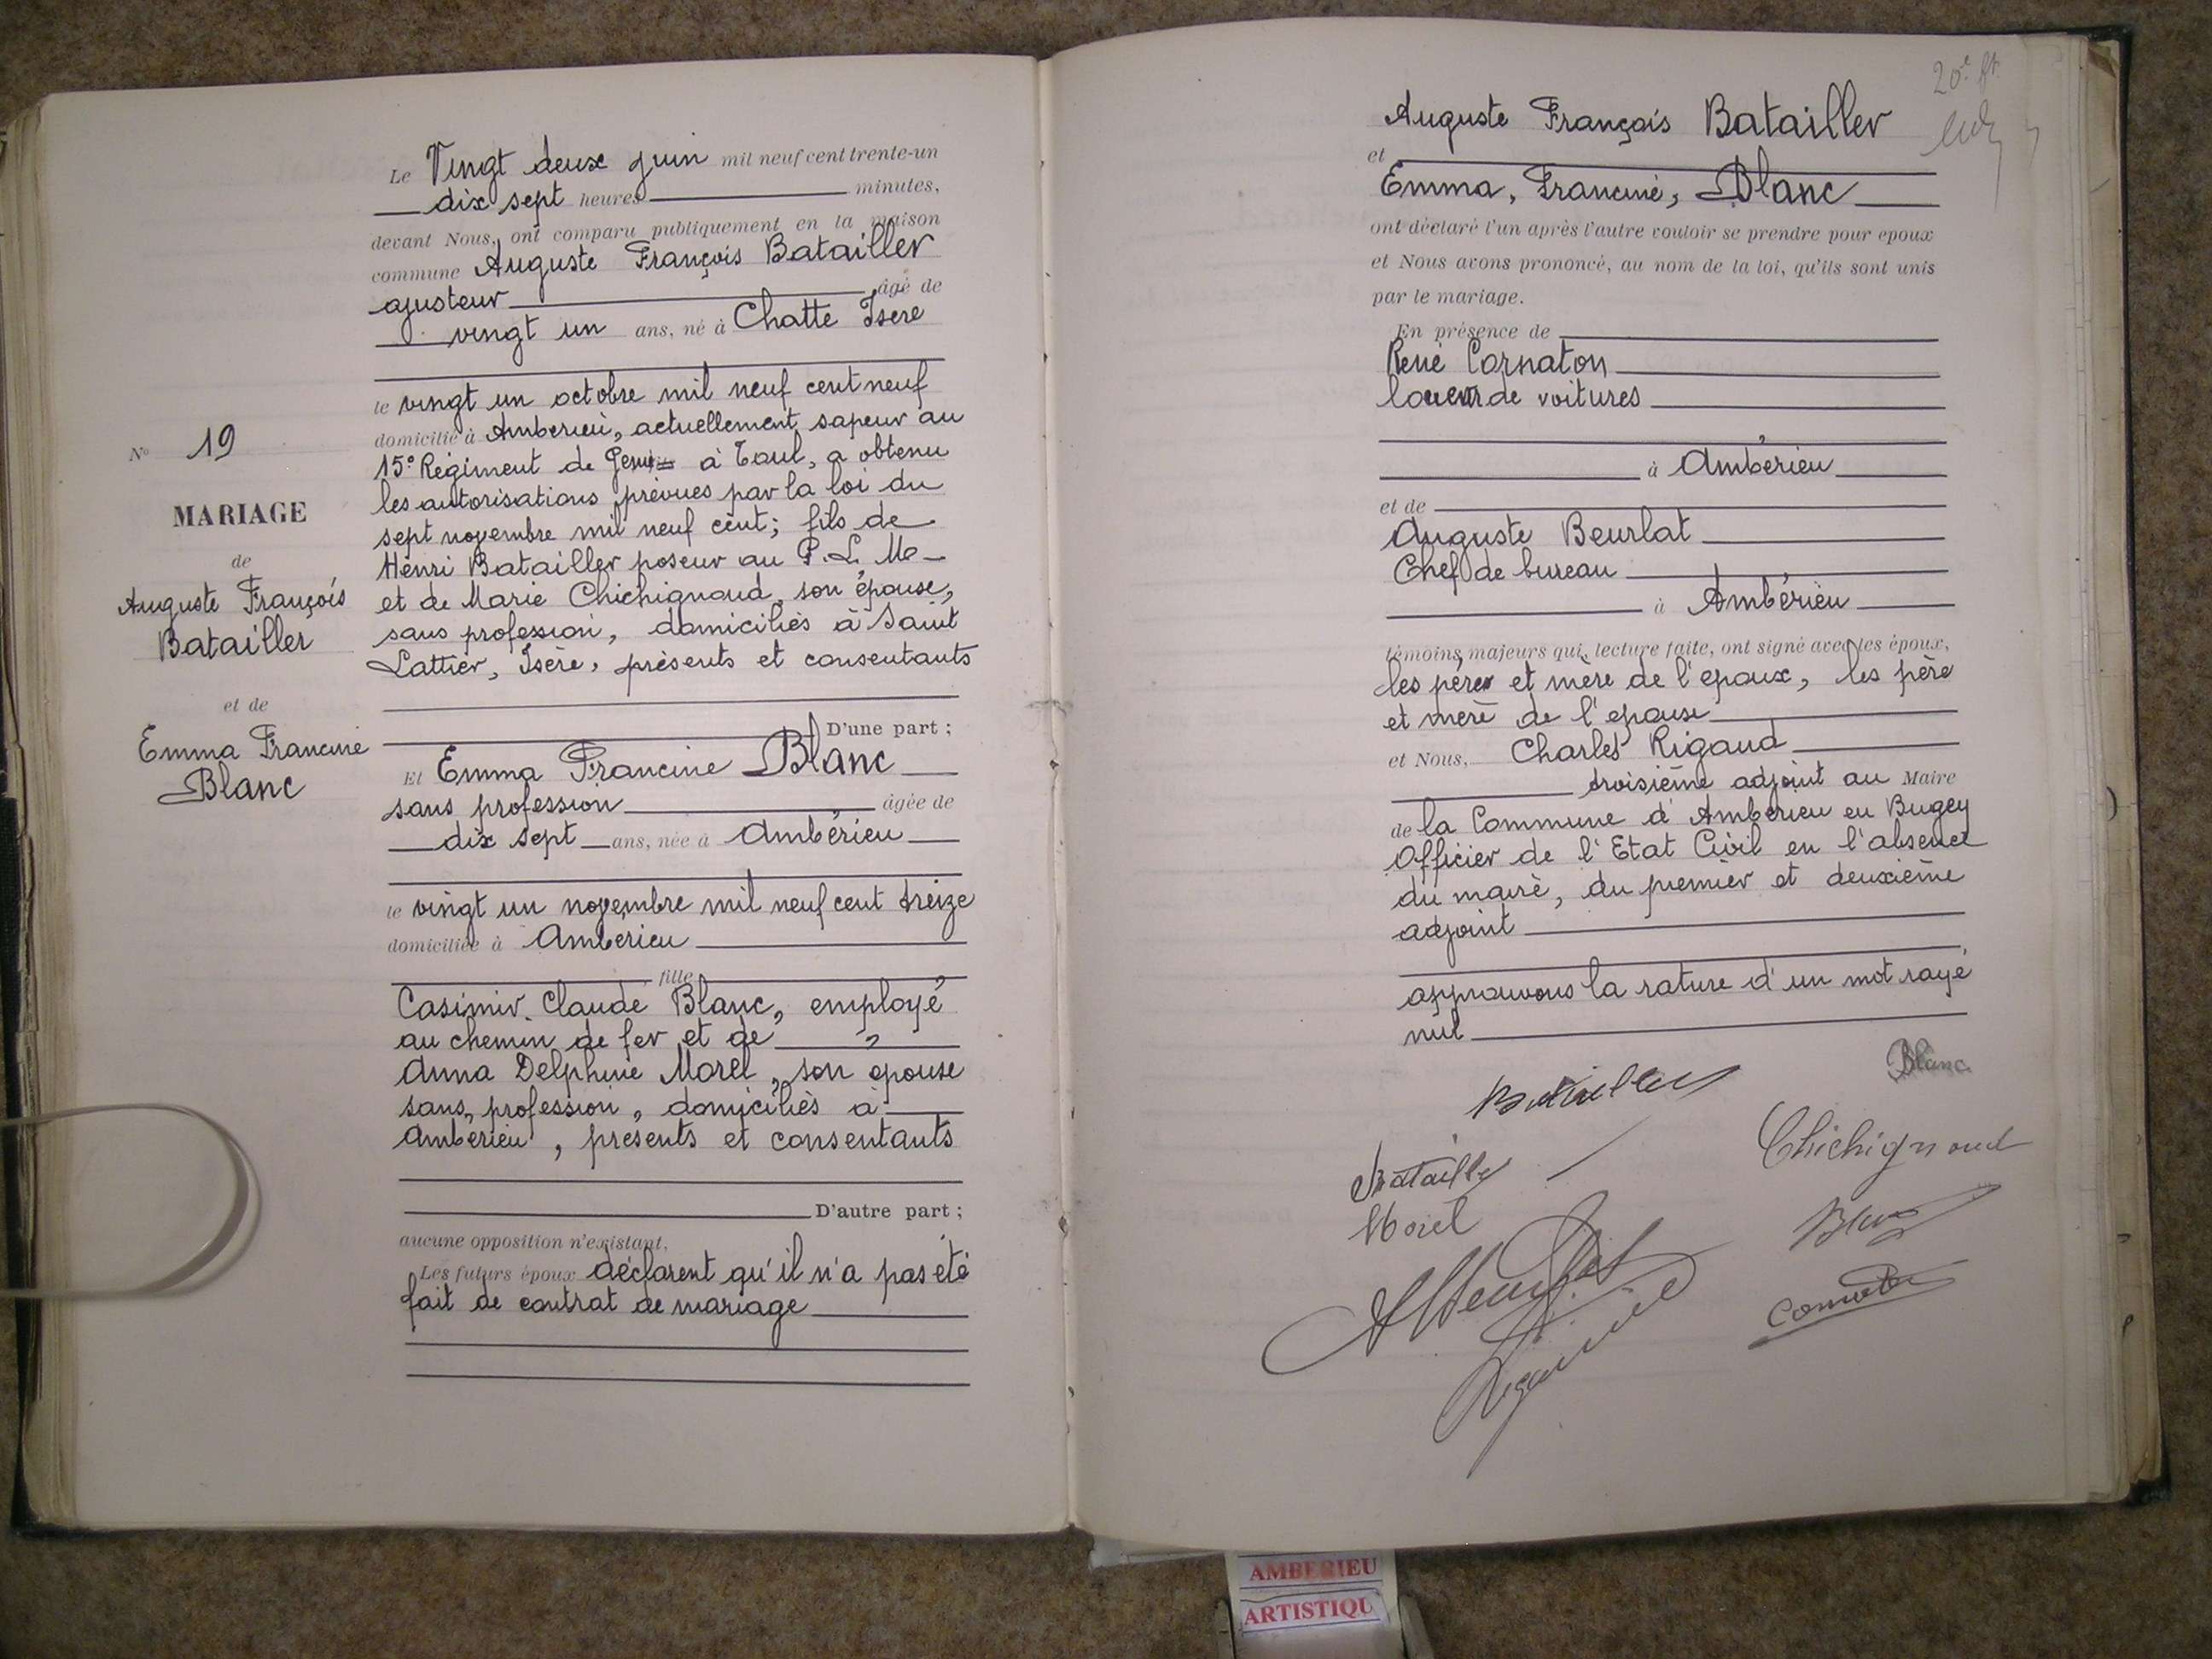 Le Vingt deux juin mil neuf cent trente-un
dix sept heures minutes,
devant Nous, ont comparu publiquement en la maison
commune Auguste François Batailler
ajusteur âgé de
vingt un ans, né à Chatte Isère
le vingt un octobre mil neuf cent neuf
domicilié à Ambérieu, actuellement sapeur au
15e Régiment de Génie à Toul, a obtenu
les autorisations prévues par la loi du
sept novembre mil neuf cent; fils de
Henri Batailler poseur au P. L. M
et de Marie Chichignoud, son épouse,
sans profession, domiciliés à Saint
Lattier, Isère, présents et consentants
D'une part ;
Et Emma Francine Blanc
sans profession âgée de
dix sept ans, née à Ambérieu
le vingt un novembre mil neuf cent treize
domiciliée à Ambérieu
fille
Casimir Claude Blanc, employé
au chemin de fer et de "
Anna Delphine Morel, son épouse
sans profession, domiciliés à
Ambérieu, présents et consentants
D'autre part ;
aucune opposition n'existant,
Les futurs époux déclarent qu'il n'a pas été
fait de contrat de mariage
No 19
MARIAGE
de
Auguste François
Batailler
et de
Emma Francine
Blanc
20e
Auguste François Batailler
et
Emma, Francine, Blanc
ont déclaré l'un après l'autre vouloir se prendre pour époux
et Nous avons prononcé, au nom de la loi, qu'ils sont unis
par le mariage.
En présence de
René Cornaton
loueur de voitures
à Ambérieu
et de
Auguste Beurlat
Chef de bureau
à Ambérieu
témoins majeurs qui, lecture faite, ont signé avec les époux,
les père et mère de l'époux, les père
et mère de l'épouse
et Nous, Charles Rigaud
troisième adjoint au Maire
de la Commune d'Ambérieu en Bugey
Officier de l'Etat Civil en l'absence
du maire, du premier et deuxième
adjoint
approuvons la rature d'un mot rayé
nul
Blanc
Batailler
Chichignoud
Batailler
Morel
Blanc
ABeurlat
Cornaton
Rigaud
AMBERIEU
ARTISTIQU